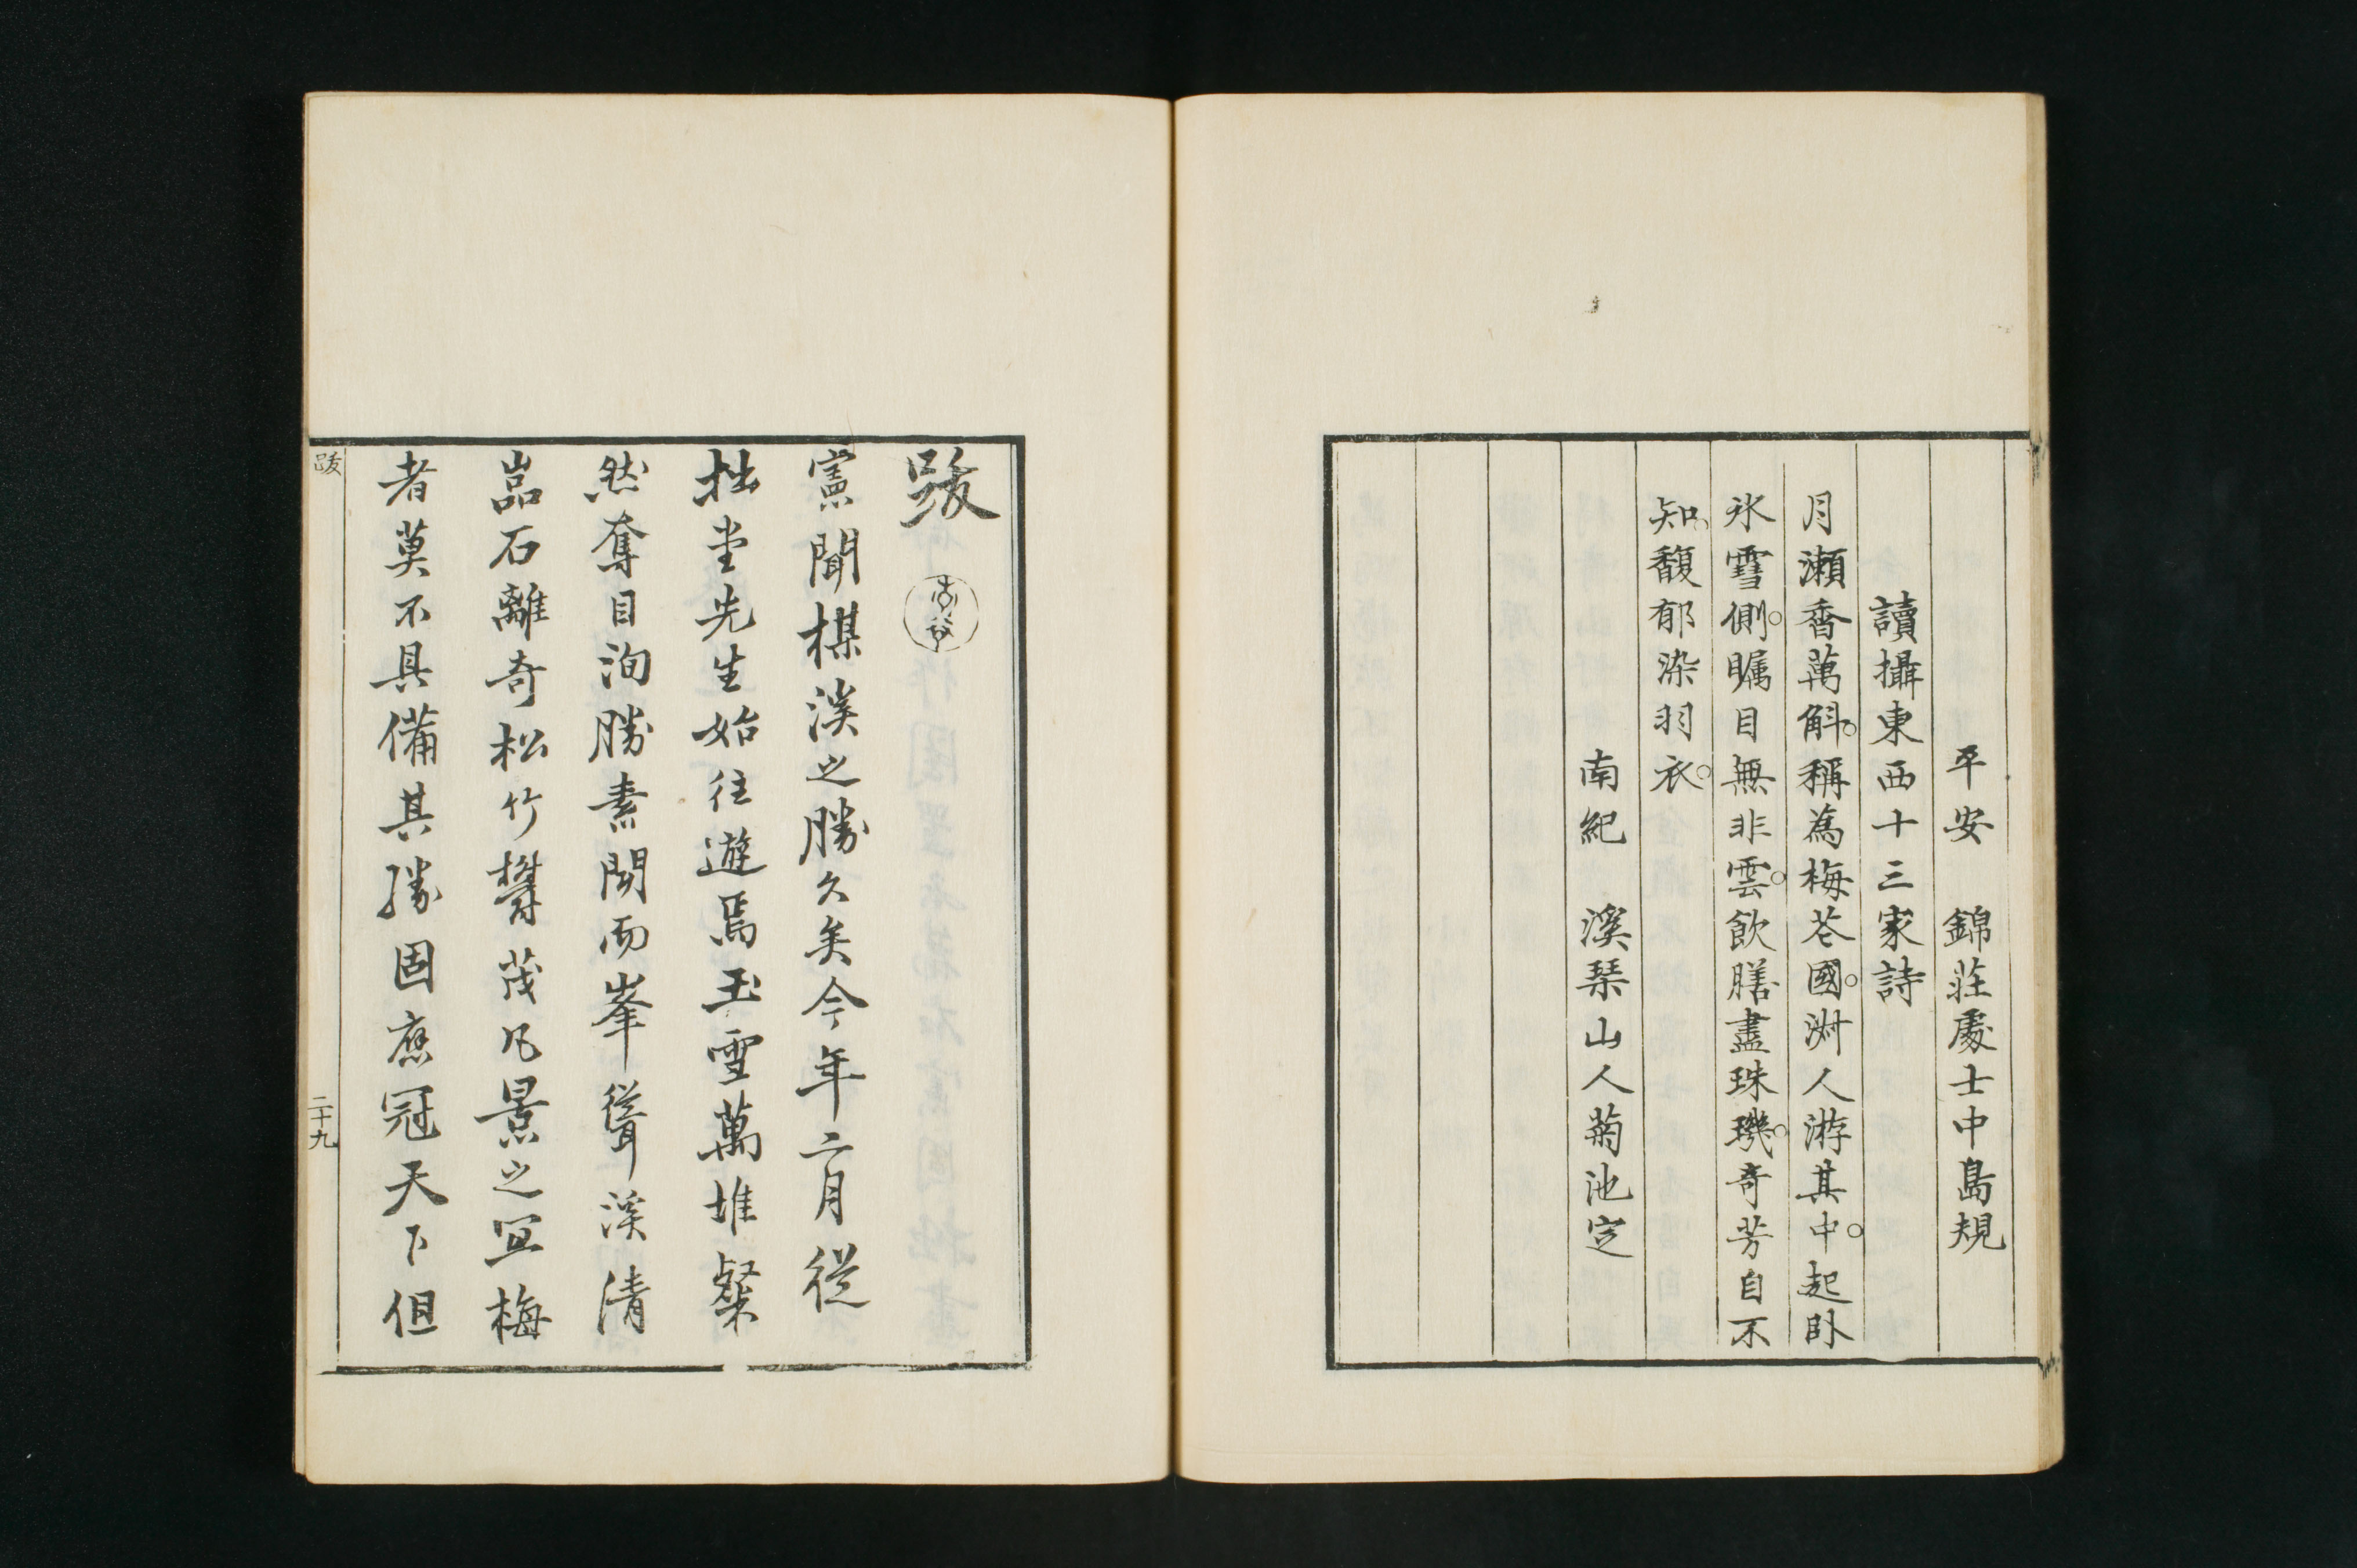 平安　錦荘處士中島規
讀攝東西十三家詩
月瀬香萬斛稱為梅苍國渊人游其中起臥
氷雪側矚目無非雲飲膳盡珠璣奇芳自不
知馥郁染羽衣
南紀　溪琴山人菊池定
跋
憲聞楳溪之勝久矣今年二月從
拙堂先生始往遊焉玉雪萬堆粲
然奪目洵勝素聞而峯聳溪清
嵓石離奇松竹欝茂凡景之宜梅
者莫不具備其勝固應冠天下但
跋
二十九